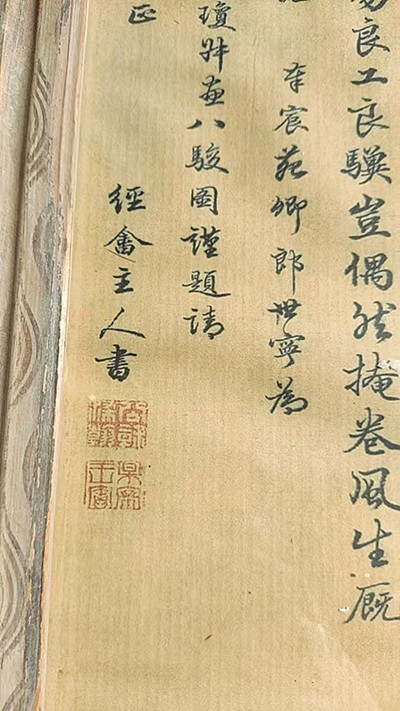 良工良驥豈偶然掩卷風生厩
奉宸苑卿郎世寧為
瓊艸畫八駿圖謹題請
正
經畬主人書